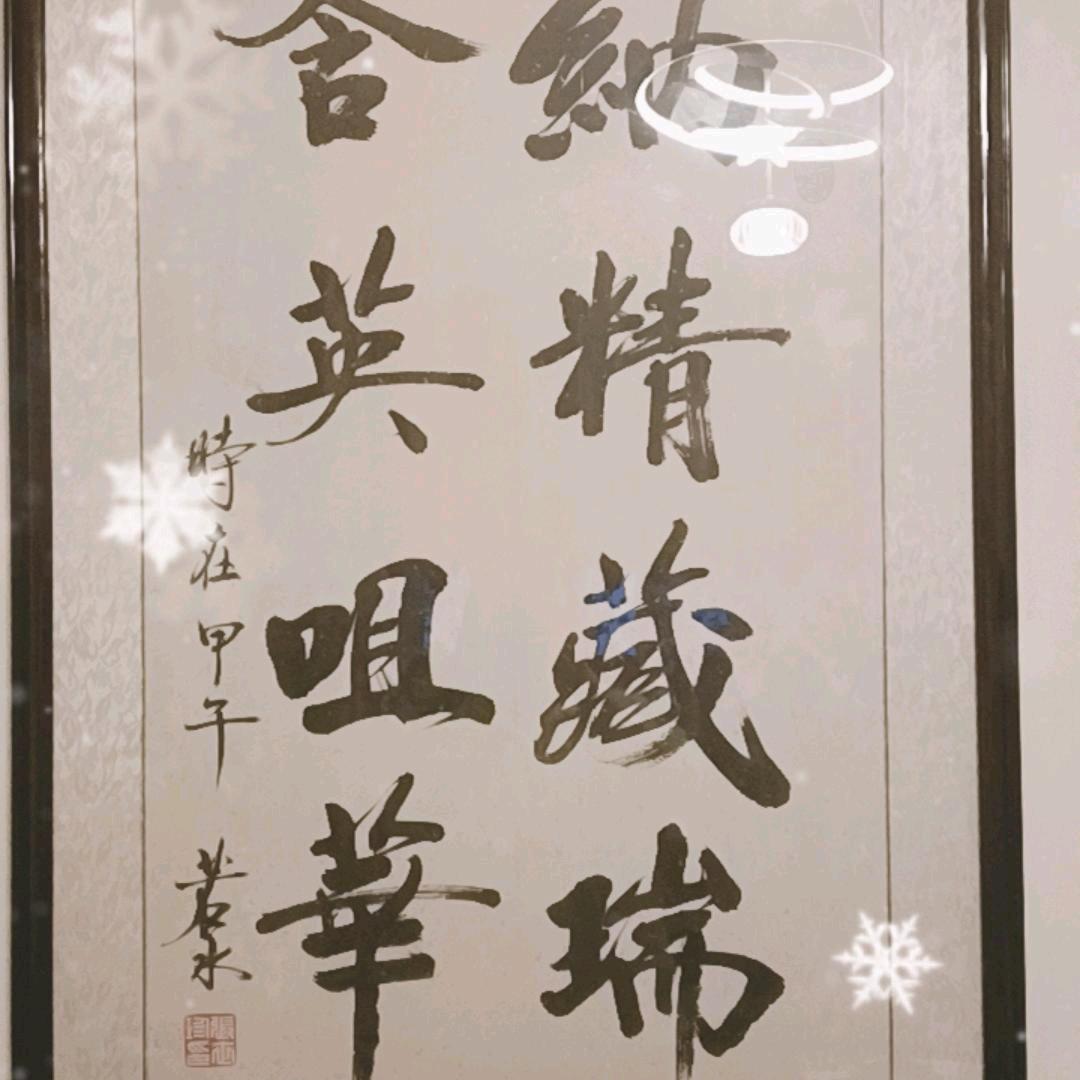 納精藏瑞
含英咀華
時在甲午 若水